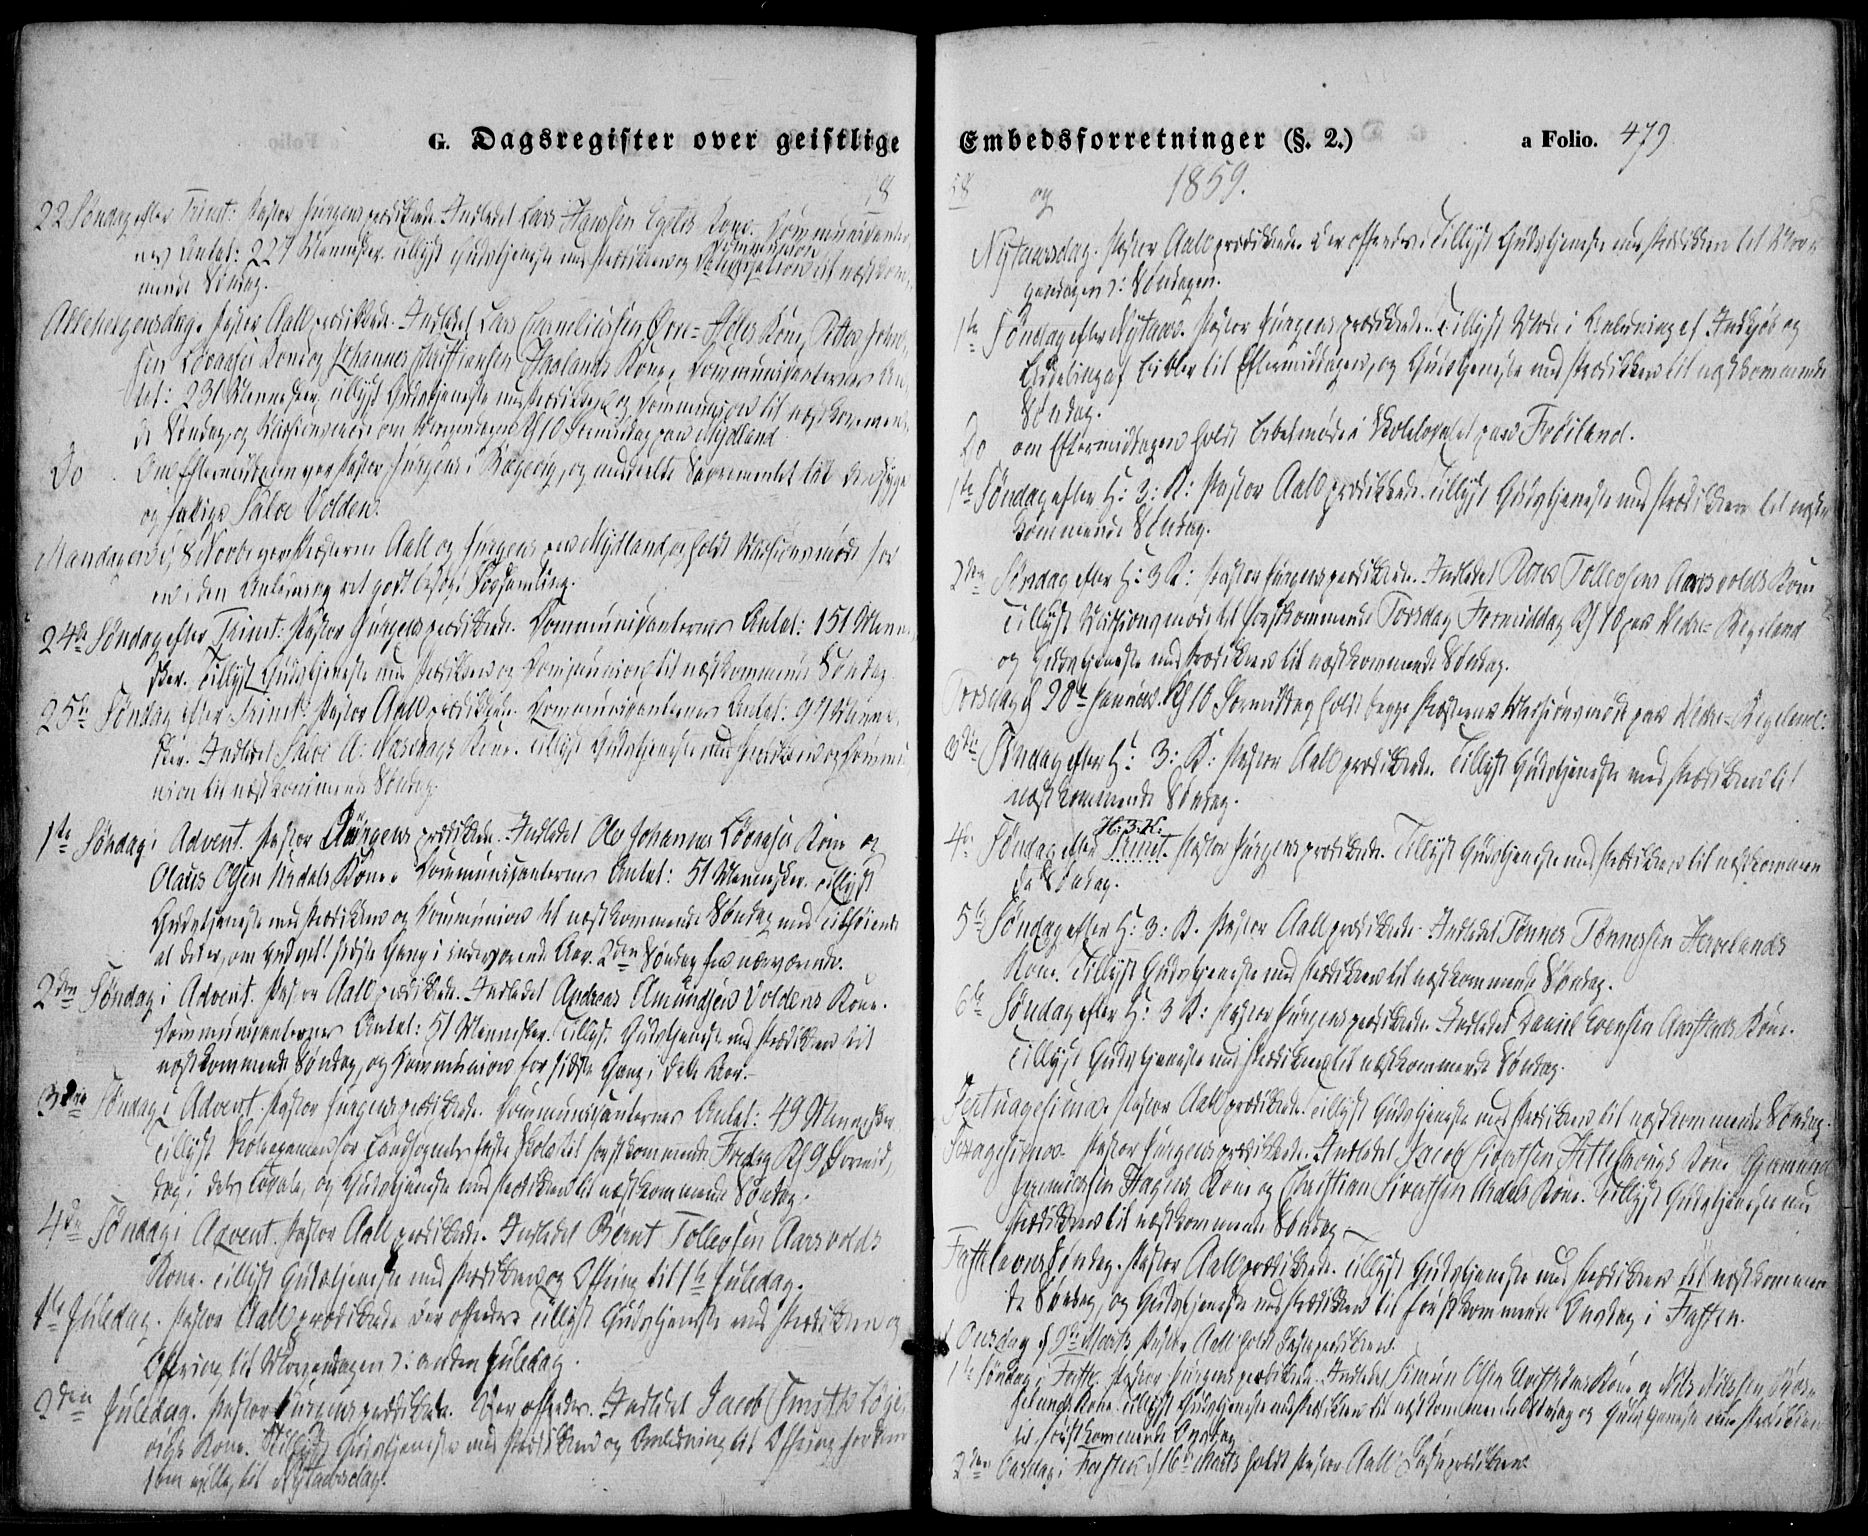 G. Dagsregister over geistlige
18
22 Søndag efter Trinit: Pastor Jürgens prædikede. Indledet Lars Hanssen Kone. Kommunikanter
nes Antal: 227 Mennesker. Tillyst Gudstjeneste med Prædiken og Communion til næstkom-
mende Søndag.
Allehelgensdag. Pastor Aall prædikede. Indledet Lars Corneliussen Kone, Petter
sen Kone og Johannes Christiansen Haalands Kone. Kommunikanternes An-
tal: 231 Mennesker. Tillyst Gudstjeneste med Prædiken og Kommunion til næstkommen-
de Søndag, og Missionsmøde om Morgendagen Kl 10 Formiddag paa Mydland.
Do Om Eftermiddagen var Pastor Jürgens i Rægevig, og meddelte Sacramentet til den syge
og Salve Volden.
Mandagen d. 8 Novbr vare Præsterne Aall og Jürgens paa Mydland, og holdt Missionsmøde for
en i den Anledning ret godt besøgt Forsamling.
24de Søndag efter Trinit: Pastor Jürgens prædikede. Kommunikanternes Antal: 151 Menne-
sker. Tillyst Gudstjeneste med Prædiken og Kommunion til næstkommende Søndag.
25de Søndag efter Trinit: Pastor Aall prædikede. Kommunikanternes Antal: 97 Menne-
sker. Indledet Salve A: Kone. Tillyst Gudstjeneste med Prædiken og Kommu-
nion til næstkommende Søndag.
1ste Søndag i Advent. Pastor Jürgens prædikede. Indledet Ole Johannes Kone og
Olaus Olsen Aadals Kone. Kommunikanternes Antal: 51 Mennesker. Tillyst
Gudstjeneste med Prædiken og Kommunion til næstkommende Søndag med Tilføiende
at det er, om Gud vil! sidste Gang i indeværende Aar. 2den Søndag fra nærværende.
2den Søndag i Advent. Pastor Aall prædikede. Indledet Andreas Amundsen Voldens Kone.
Kommunikanternes Antal: 51 Mennesker. Tillyst Gudstjeneste med Prædiken til
næstkommende Søndag, og Kommunion for sidste Gang i dette Aar.
3die Søndag i Advent. Pastor Jürgens prædikede. Kommunikanternes Antal: 49 Mennesker
Tillyst Skoleexamen for Landsognets faste Skole til førstkommende Fredag Kl 9 Formid-
dag i dets Locale, og Gudstjeneste med Prædiken til næstkommende Søndag.
4de Søndag i Advent. Pastor Aall prædikede. Indledet Bernt Tollevsen Aarsvolds
Kone. Tillyst Gudstjeneste med Prædiken og Offring til 1ste Juledag.
1ste Juledag. Pastor Aall prædikede. Der offredes. Tillyst Gudstjeneste med Prædiken og
Offring til Morgendagen ɔ: anden Juledag.
2den Juledag. Pastor Jürgens prædikede. Der offredes. Indledet Jacob Smith
Kone. Tillyst Gudstjeneste med Prædiken og Anledning til Offring for dem
som ville, til Nytaarsdag.
Embedsforretninger (§. 2.) a Folio. 479
58 og 1859.
Nytaarsdag. Pastor Aall prædikede. Der offredes. Tillyst Gudstjeneste med Prædiken til Mor-
gendagen ɔ: Søndagen.
1ste Søndag efter Nytaar. Pastor Jürgens prædikede. Tillyst Møde i Anledning af Indkjøb og
Uddeling af Bibler til Eftermiddagen, og Gudstjeneste med Prædiken til næstkommende
Søndag.
Do om Eftermiddagen holdt Bibelmøde i Skolelocalet paa Frøiland.
1ste Søndag efter H: 3: K: Pastor Aall prædikede. Tillyst Gudstjeneste med Prædiken til næst-
kommende Søndag.
2den Søndag efter H: 3 K: Pastor Jürgens prædikede. Indledet Tollevsen Aarsvolds Kone
Tillyst Missionsmøde til førstkommende Torsdag Formiddag Kl 10 paa Nedre-Regeland
og Gudstjeneste med Prædiken til næstkommende Søndag.
Torsdag d. 20de Januar. Kl 10 Formiddag holdt begge Præsterne Missionsmøde paa Nedre-Regeland.
3die Søndag efter H: 3: K: Pastor Aall prædikede. Tillyst Gudstjeneste med Prædiken til
næstkommende Søndag.
H: 3: K:
4de Søndag efter Trinit. Pastor Jürgens prædikede. Tillyst Gudstjeneste med Prædiken til næstkommen
de Søndag.
5te Søndag efter H: 3: K. Pastor Aall prædikede. Indledet Tønnes Tønnessen Hervelands
Kone. Tillyst Gudstjeneste med Prædiken til næstkommende Søndag.
6te Søndag efter H: 3 K: Pastor Jürgens prædikede. Indledet Daniel Evensen Aarstads Kone.
Tillyst Gudstjeneste med Prædiken til næstkommende Søndag.
Septuagesima. Pastor Aall prædikede. Tillyst Gudstjeneste med Prædiken til næstkommende Søndag.
Sexagesima. Pastor Jürgens prædikede. Indledet Jacob Sivertsen Kone,
Hagens Kone og Christian Sivertsen Aadals Kone. Tillyst Gudstjeneste med
Prædiken til næstkommende Søndag.
Fastelavns Søndag. Pastor Aall prædikede. Tillyst Gudstjeneste med Prædiken til næstkommen-
de Søndag, og Gudstjeneste med Prædiken til førstkommende Onsdag i Fasten.
1 Onsdag d. 9de Marts Pastor Aall holdt Fasteprædiken.
1ste Søndag i Faste. Pastor Jürgens prædikede. Indledet Simon Olsen Kone og Nils Nilssen
Kone. Tillyst Gudstjeneste med Prædiken til næstkommende Søndag og Gudstjeneste med Prædiken
til førstkommende Onsdag.
2den Onsdag i Fasten d. 16de Marts holdt Pastor Aall Fasteprædiken.